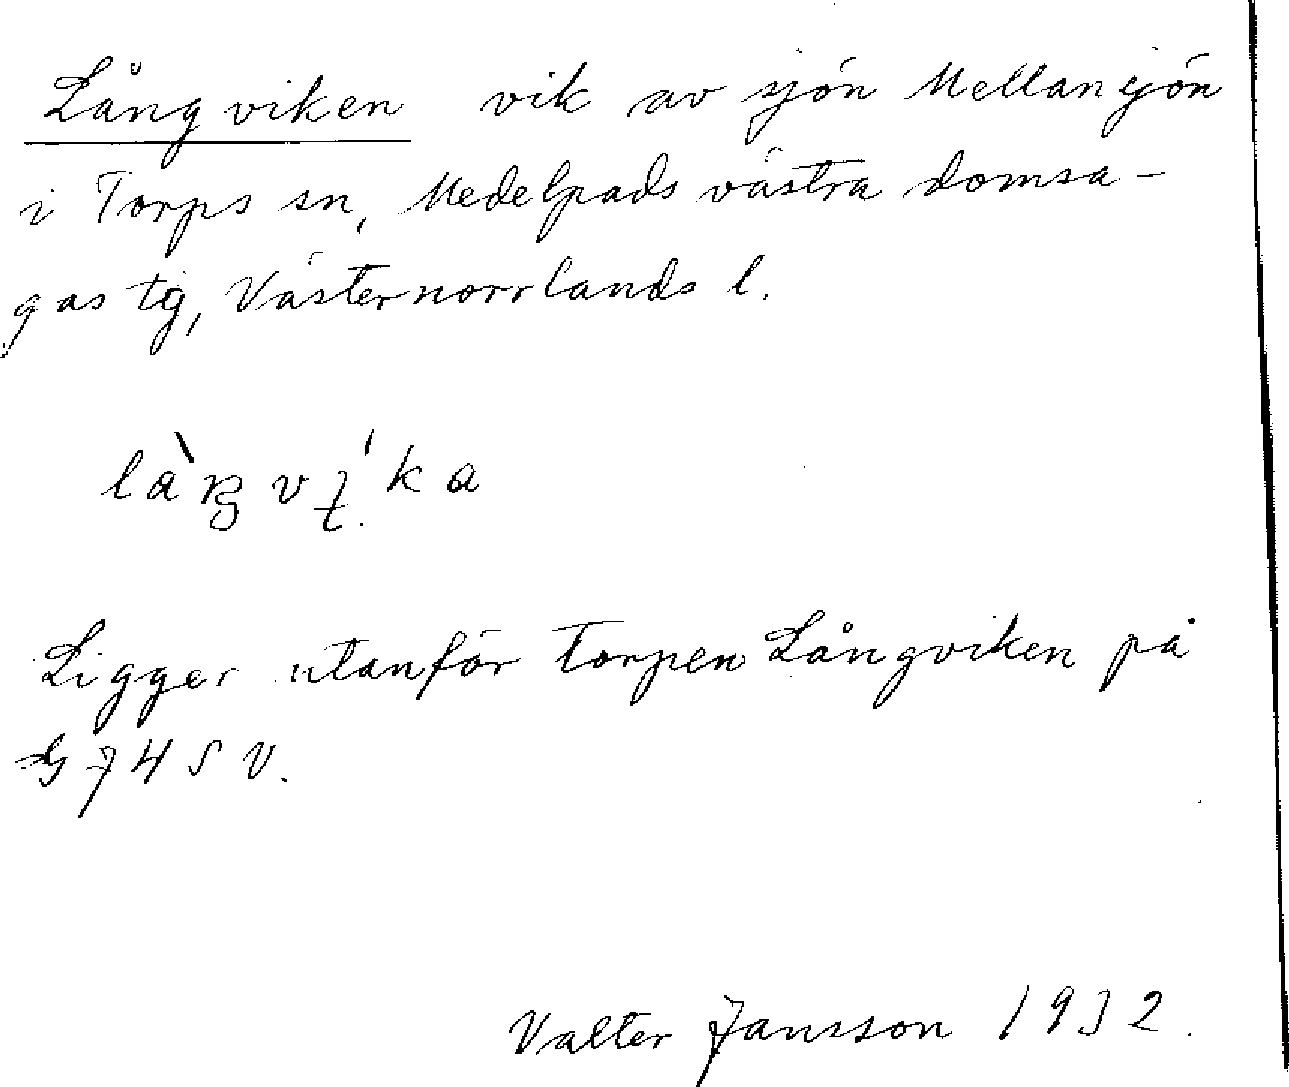 Långviken vik av sjön Mellansjön
i Torps sn, Medelpads västra domsa-
gas tg, Västernorrlands l.
Ligger utanför torpen Långviken på
G 74 S V.
Valter Jansson 1932.